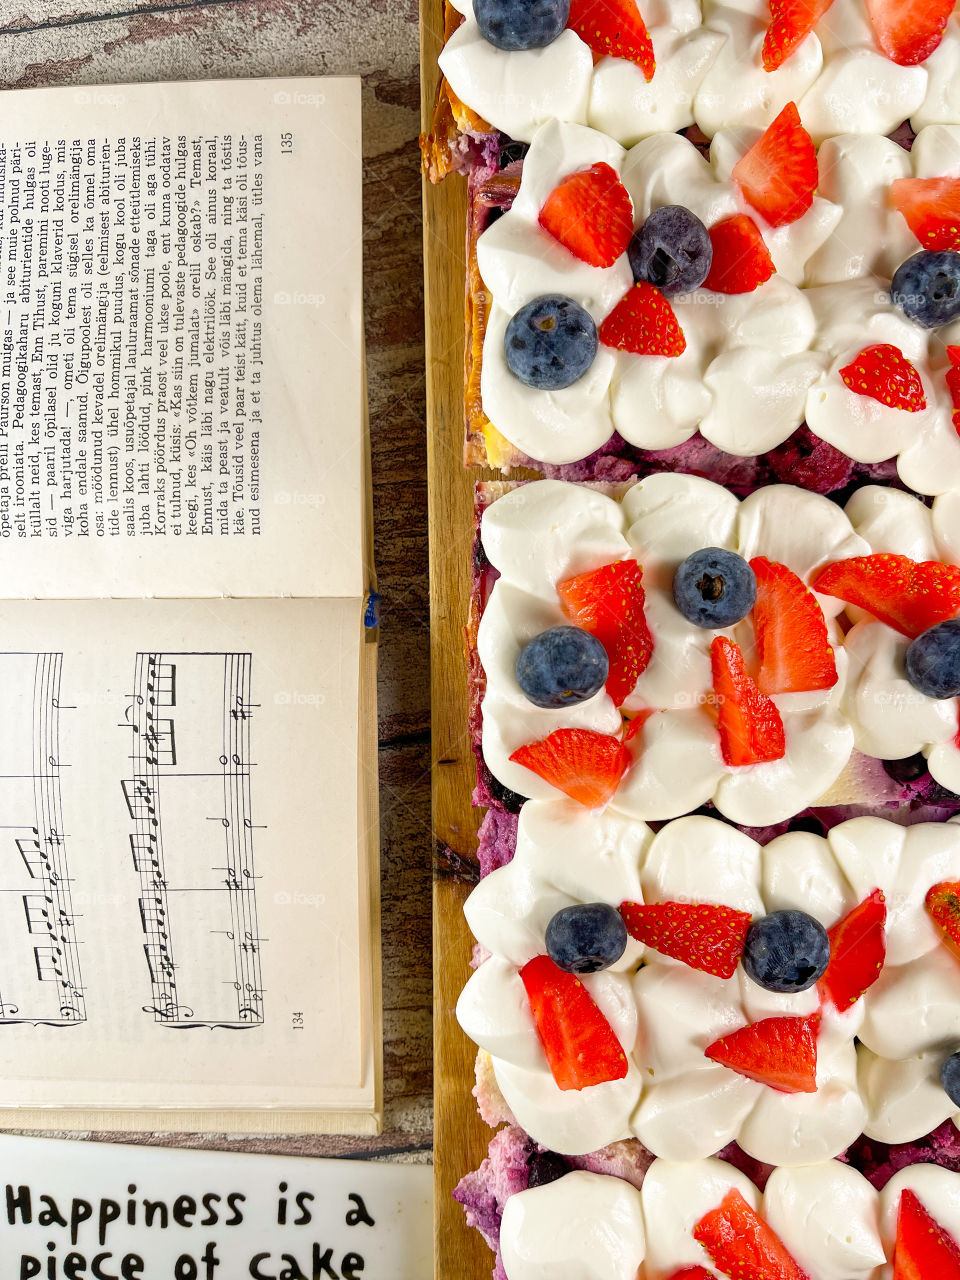 õpetaja preili Paurson muigas — ja see muie polnud päri-
selt irooniata. Pedagoogikaharu abiturientide hulgas oli
küllalt neid, kes temast, Enn Tihust, paremini nooti luge-
sid — paaril õpilasel olid ju koguni klaverid kodus, mis
viga harjutada! —, ometi oli tema sügisel orelimängija
koha endale saanud. Õigupoolest oli selles ka õnnel oma
osa: möödunud kevadel orelimängija (eelmisest abiturien-
tide lennust) ühel hommikul puudus, kogu kool oli juba
saalis koos, usuõpetajal lauluraamat sõnade etteütlemiseks
juba lahti löödud, pink harmooniumi taga oli aga tühi.
Korraks pöördus praost veel ukse poole, ent kuna oodatav
ei tulnud, küsis: «Kas siin on tulevaste pedagoogide hulgas
keegi, kes «Oh võtkem jumalat» orelil oskab?» Temast,
Ennust, käis läbi nagu elektrilöök. See oli ainus koraal,
mida ta peast ja veatult võis läbi mängida, ning ta tõstis
käe. Tõusid veel paar teist kätt, kuid et tema käsi oli tõus-
nud esimesena ja et ta juhtus olema lähemal, ütles vana
135
134
Happiness is a
piece of cake